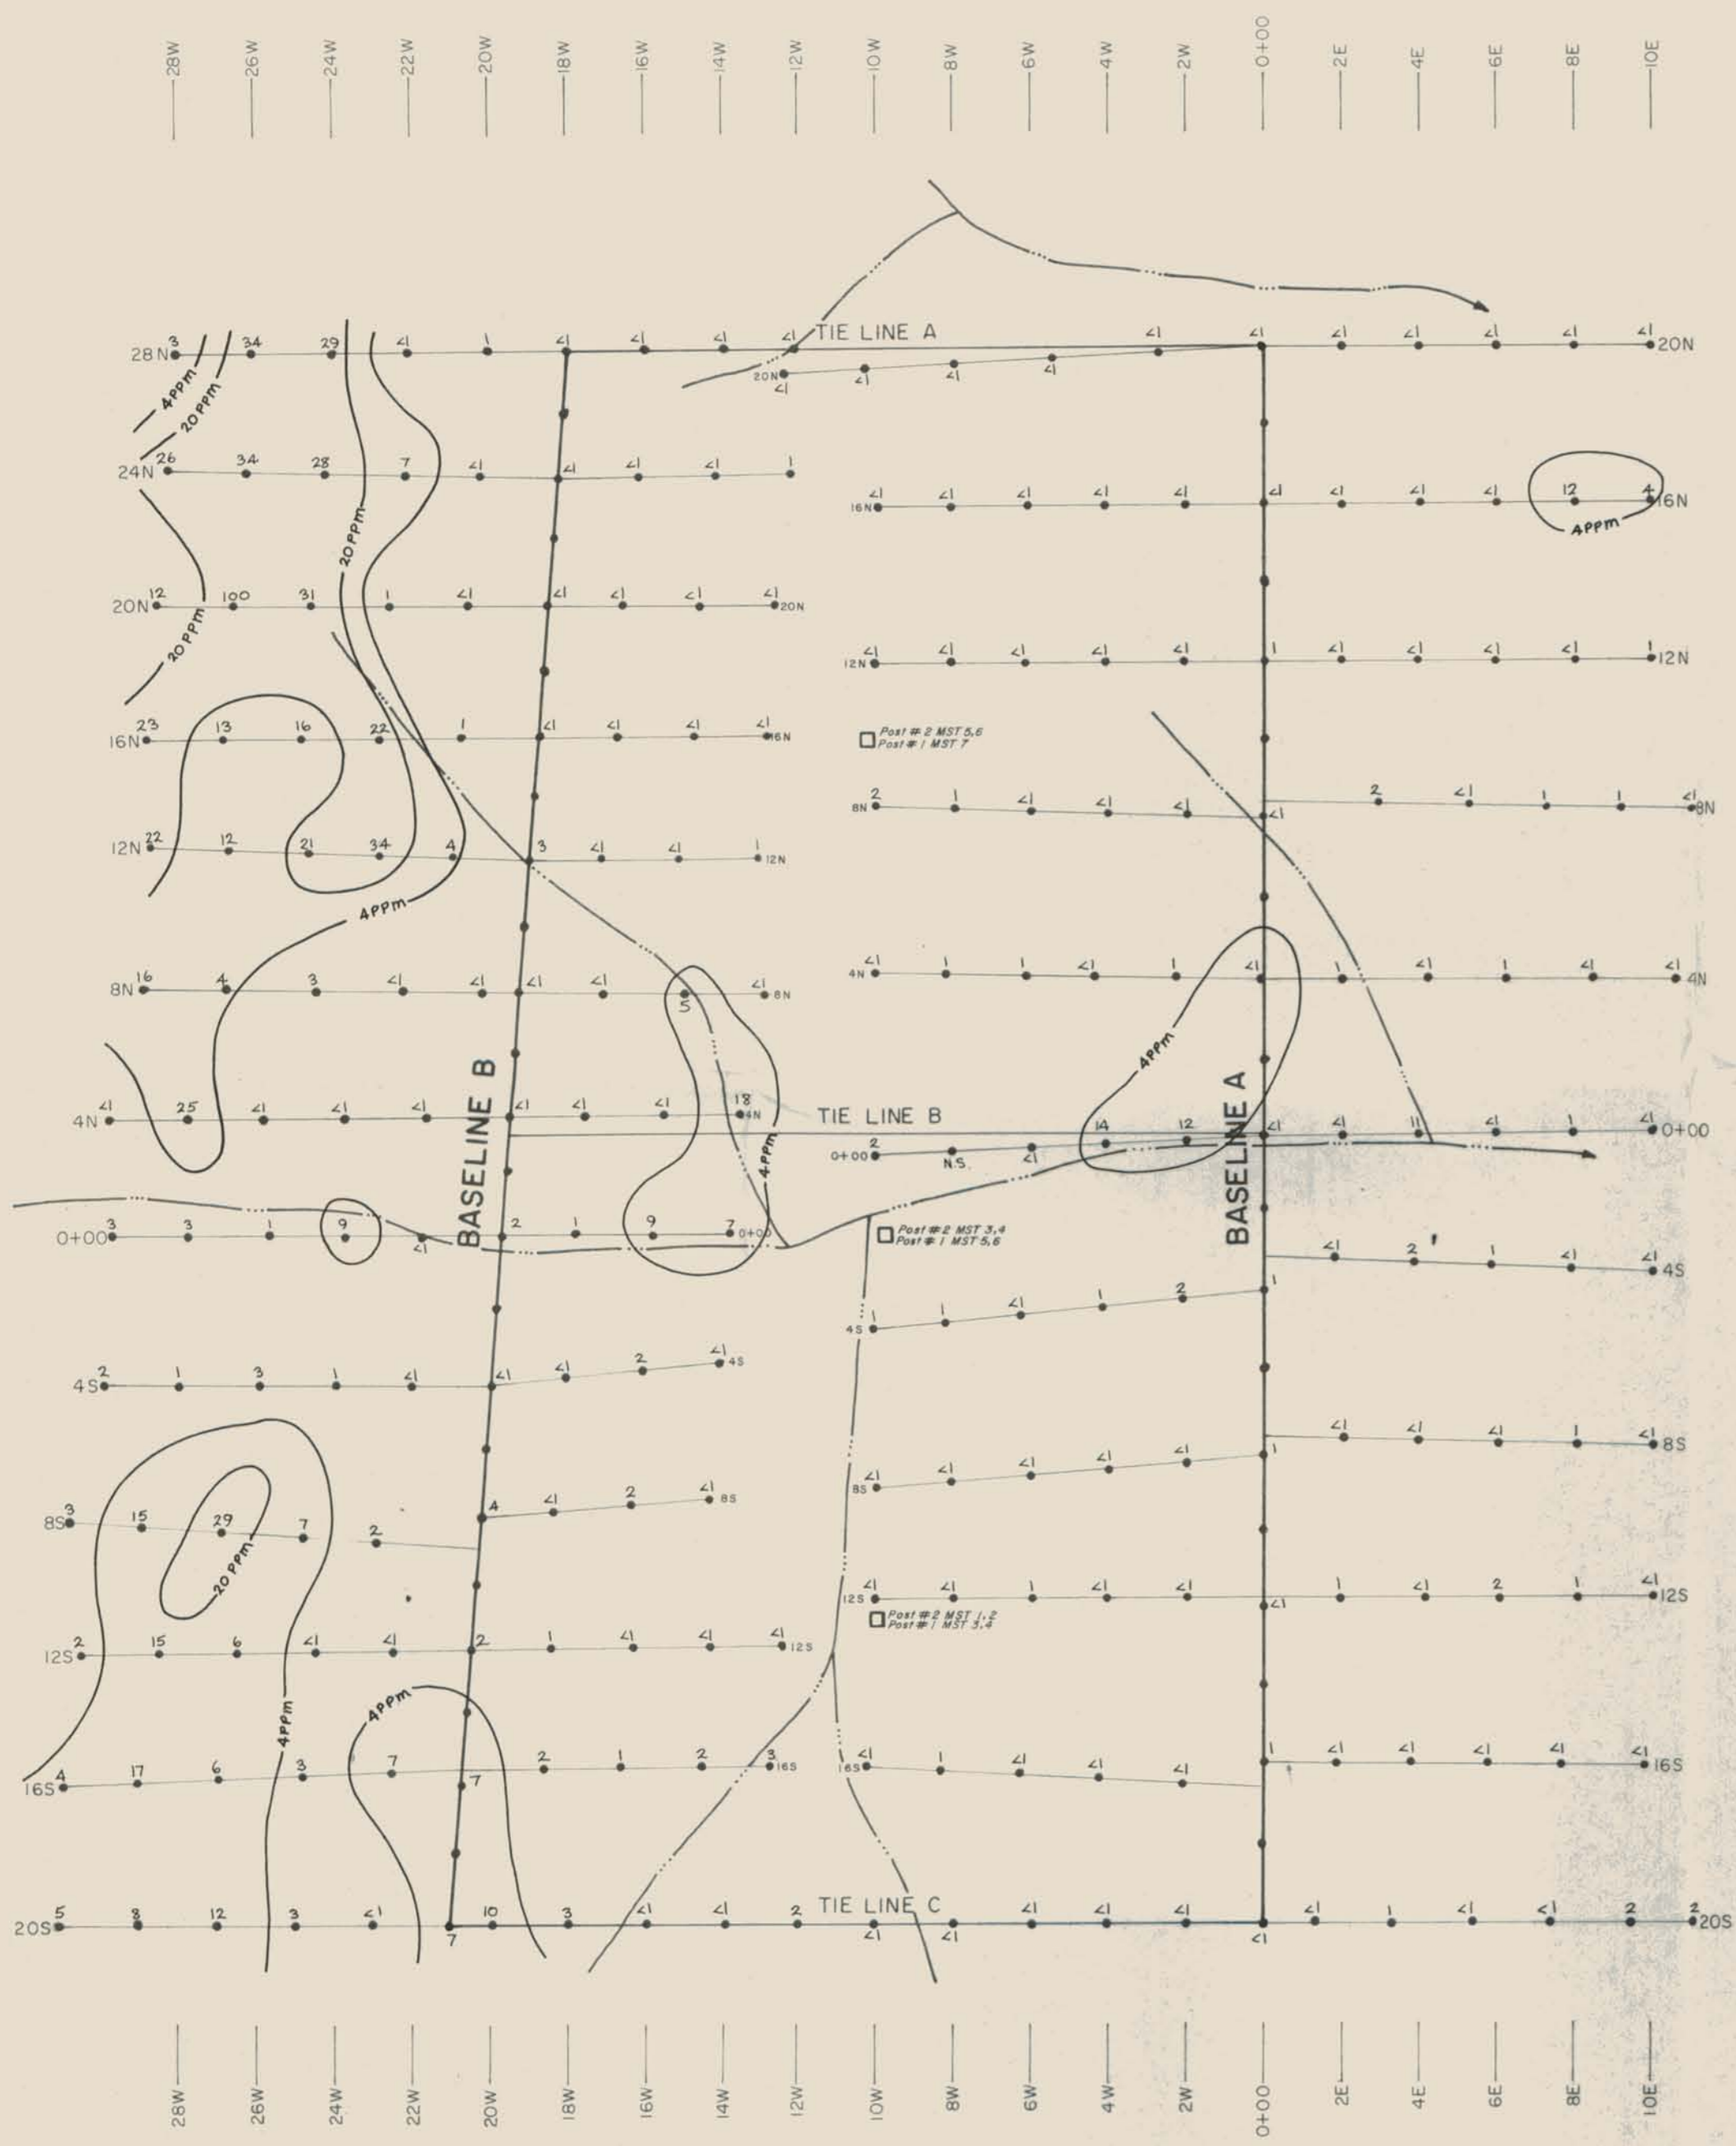 28W 26W 24W 22W 20W 18W 16W 14W 12W 10W 8W 6W 4W 2W 0+00 2E 4E 6E 8E 10E
TIE LINE A
28N 3 34 29 <1 1 <1 <1 <1 <1 <1 <1 <1 <1 <1 <1 <1 20N
20N <1 <1 <1 <1
4PPm
20PPm
24N 26 34 28 7 <1 <1 <1 <1 1
16N <1 <1 <1 <1 <1 <1 <1 <1 <1 12 4 16N
4PPm
20PPm
20N 12 100 31 1 <1 <1 <1 <1 <1 20N
20PPm
12N <1 <1 <1 <1 <1 1 <1 <1 <1 <1 1 12N
16N 23 13 16 22 1 <1 <1 <1 <1 16N
Post #2 MST 5,6
Post #1 MST 7
8N 2 1 <1 <1 <1 <1 2 <1 1 1 <1 8N
12N 22 12 21 34 4 3 <1 <1 1 12N
4PPm
8N 16 4 3 <1 <1 <1 <1 5 <1 8N
4N <1 1 1 <1 1 <1 1 <1 1 <1 <1 4N
4PPm
BASELINE B
BASELINE A
4N <1 25 <1 <1 <1 <1 <1 <1 18 4N
TIE LINE B
0+00 2 N.S. <1 14 12 <1 <1 11 <1 1 <1 0+00
4PPm
0+00 3 3 1 9 <1 2 1 9 7 0+00
Post #2 MST 3,4
Post #1 MST 5,6
<1 2 1 <1 <1 4S
4S 1 1 <1 1 2 1
4S 2 1 3 1 <1 <1 <1 2 <1 4S
<1 <1 <1 1 <1 8S
8S <1 <1 <1 <1 <1 1
8S 3 15 29 7 2 4 <1 2 <1 8S
20PPm
12S <1 <1 1 <1 <1 <1 1 <1 2 1 <1 12S
Post #2 MST 1,2
Post #1 MST 3,4
12S 2 15 6 <1 <1 2 1 <1 <1 <1 12S
4PPm
4PPm
16S 4 17 6 3 7 7 2 1 2 3 16S
16S <1 1 <1 <1 <1 1 <1 <1 <1 <1 <1 16S
TIE LINE C
20S 5 8 12 3 <1 7 10 3 <1 <1 2 <1 <1 <1 <1 <1 <1 <1 1 <1 <1 2 2 20S
28W 26W 24W 22W 20W 18W 16W 14W 12W 10W 8W 6W 4W 2W 0+00 2E 4E 6E 8E 10E